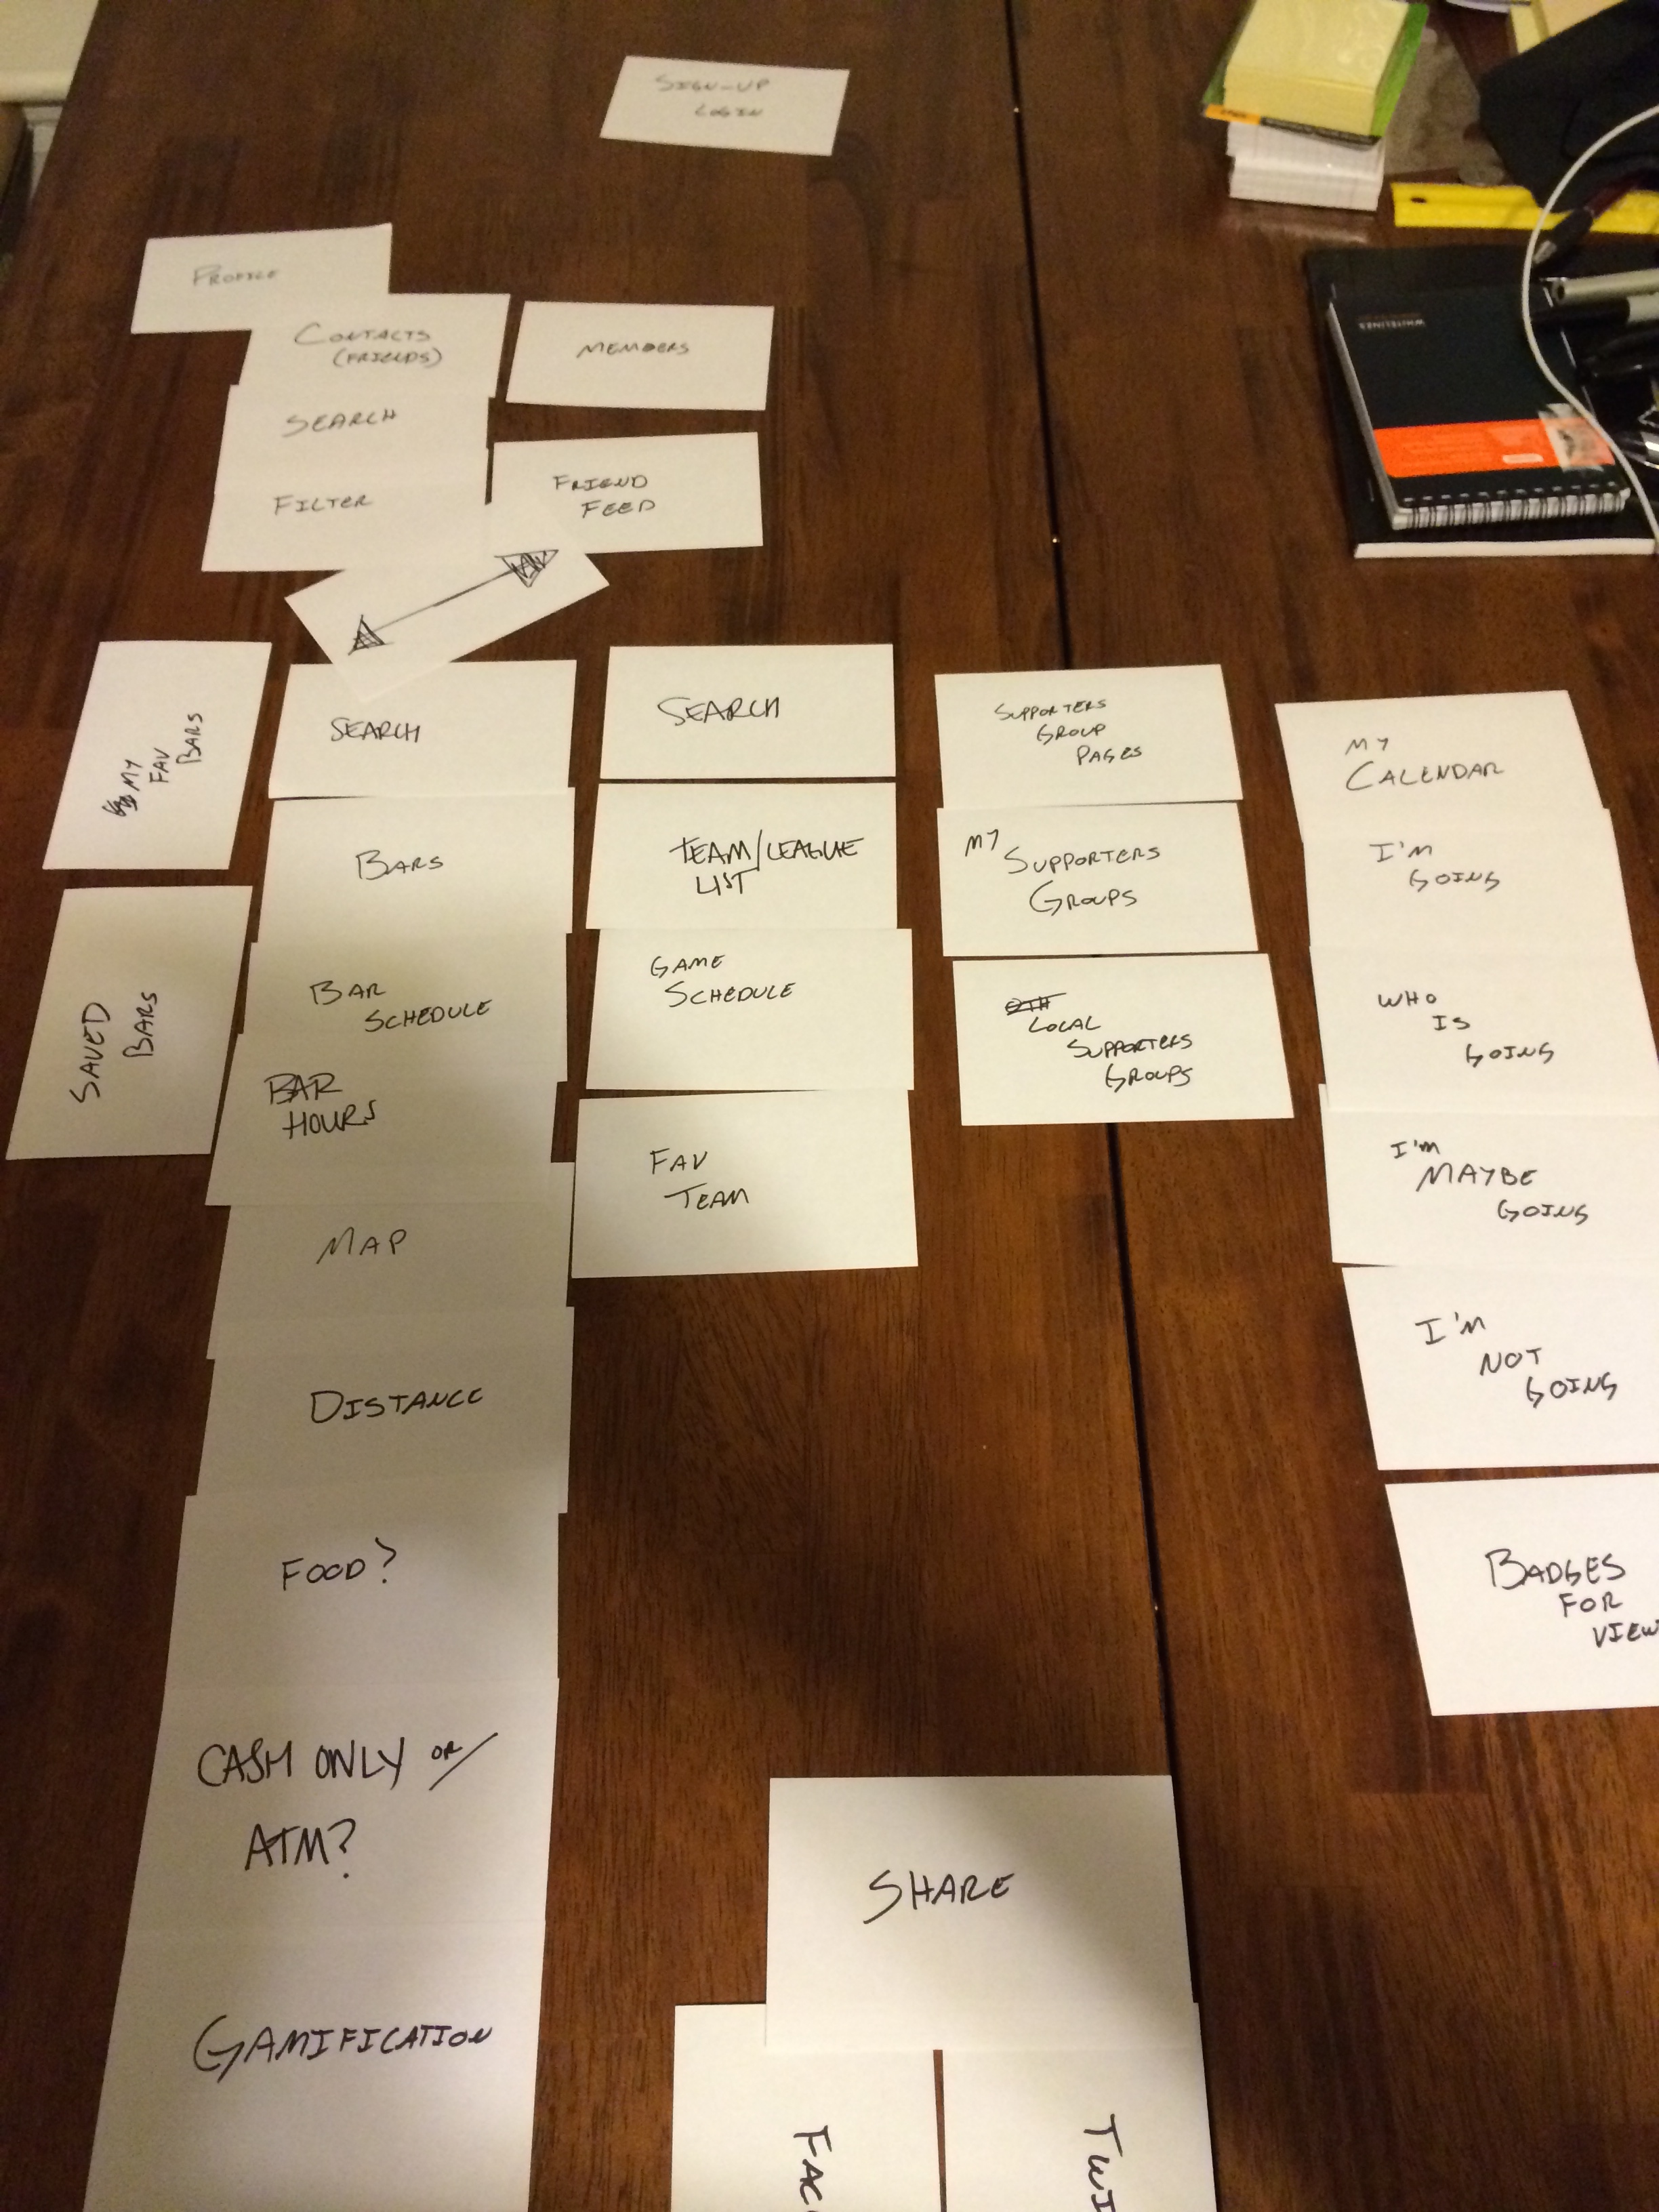 SIGN-UP
LOGIN
PROFILE
CONTACTS
(FRIENDS)
MEMBERS
SEARCH
FILTER
FRIEND
FEED
WHITELINES
MY
FAV
BARS
SAVED
BARS
SEARCH
BARS
BAR
SCHEDULE
BAR
HOURS
MAP
DISTANCE
FOOD?
CASH ONLY OR/
ATM?
GAMIFICATION
SEARCH
TEAM/LEAGUE
LIST
GAME
SCHEDULE
FAV
TEAM
SUPPORTERS
GROUP
PAGES
MY
SUPPORTERS
GROUPS
OTH
LOCAL
SUPPORTERS
GROUPS
MY
CALENDAR
I'M
GOING
WHO
IS
GOING
I'M
MAYBE
GOING
I'M
NOT
GOING
BADGES
FOR
VIEW
SHARE
FAC
TWI